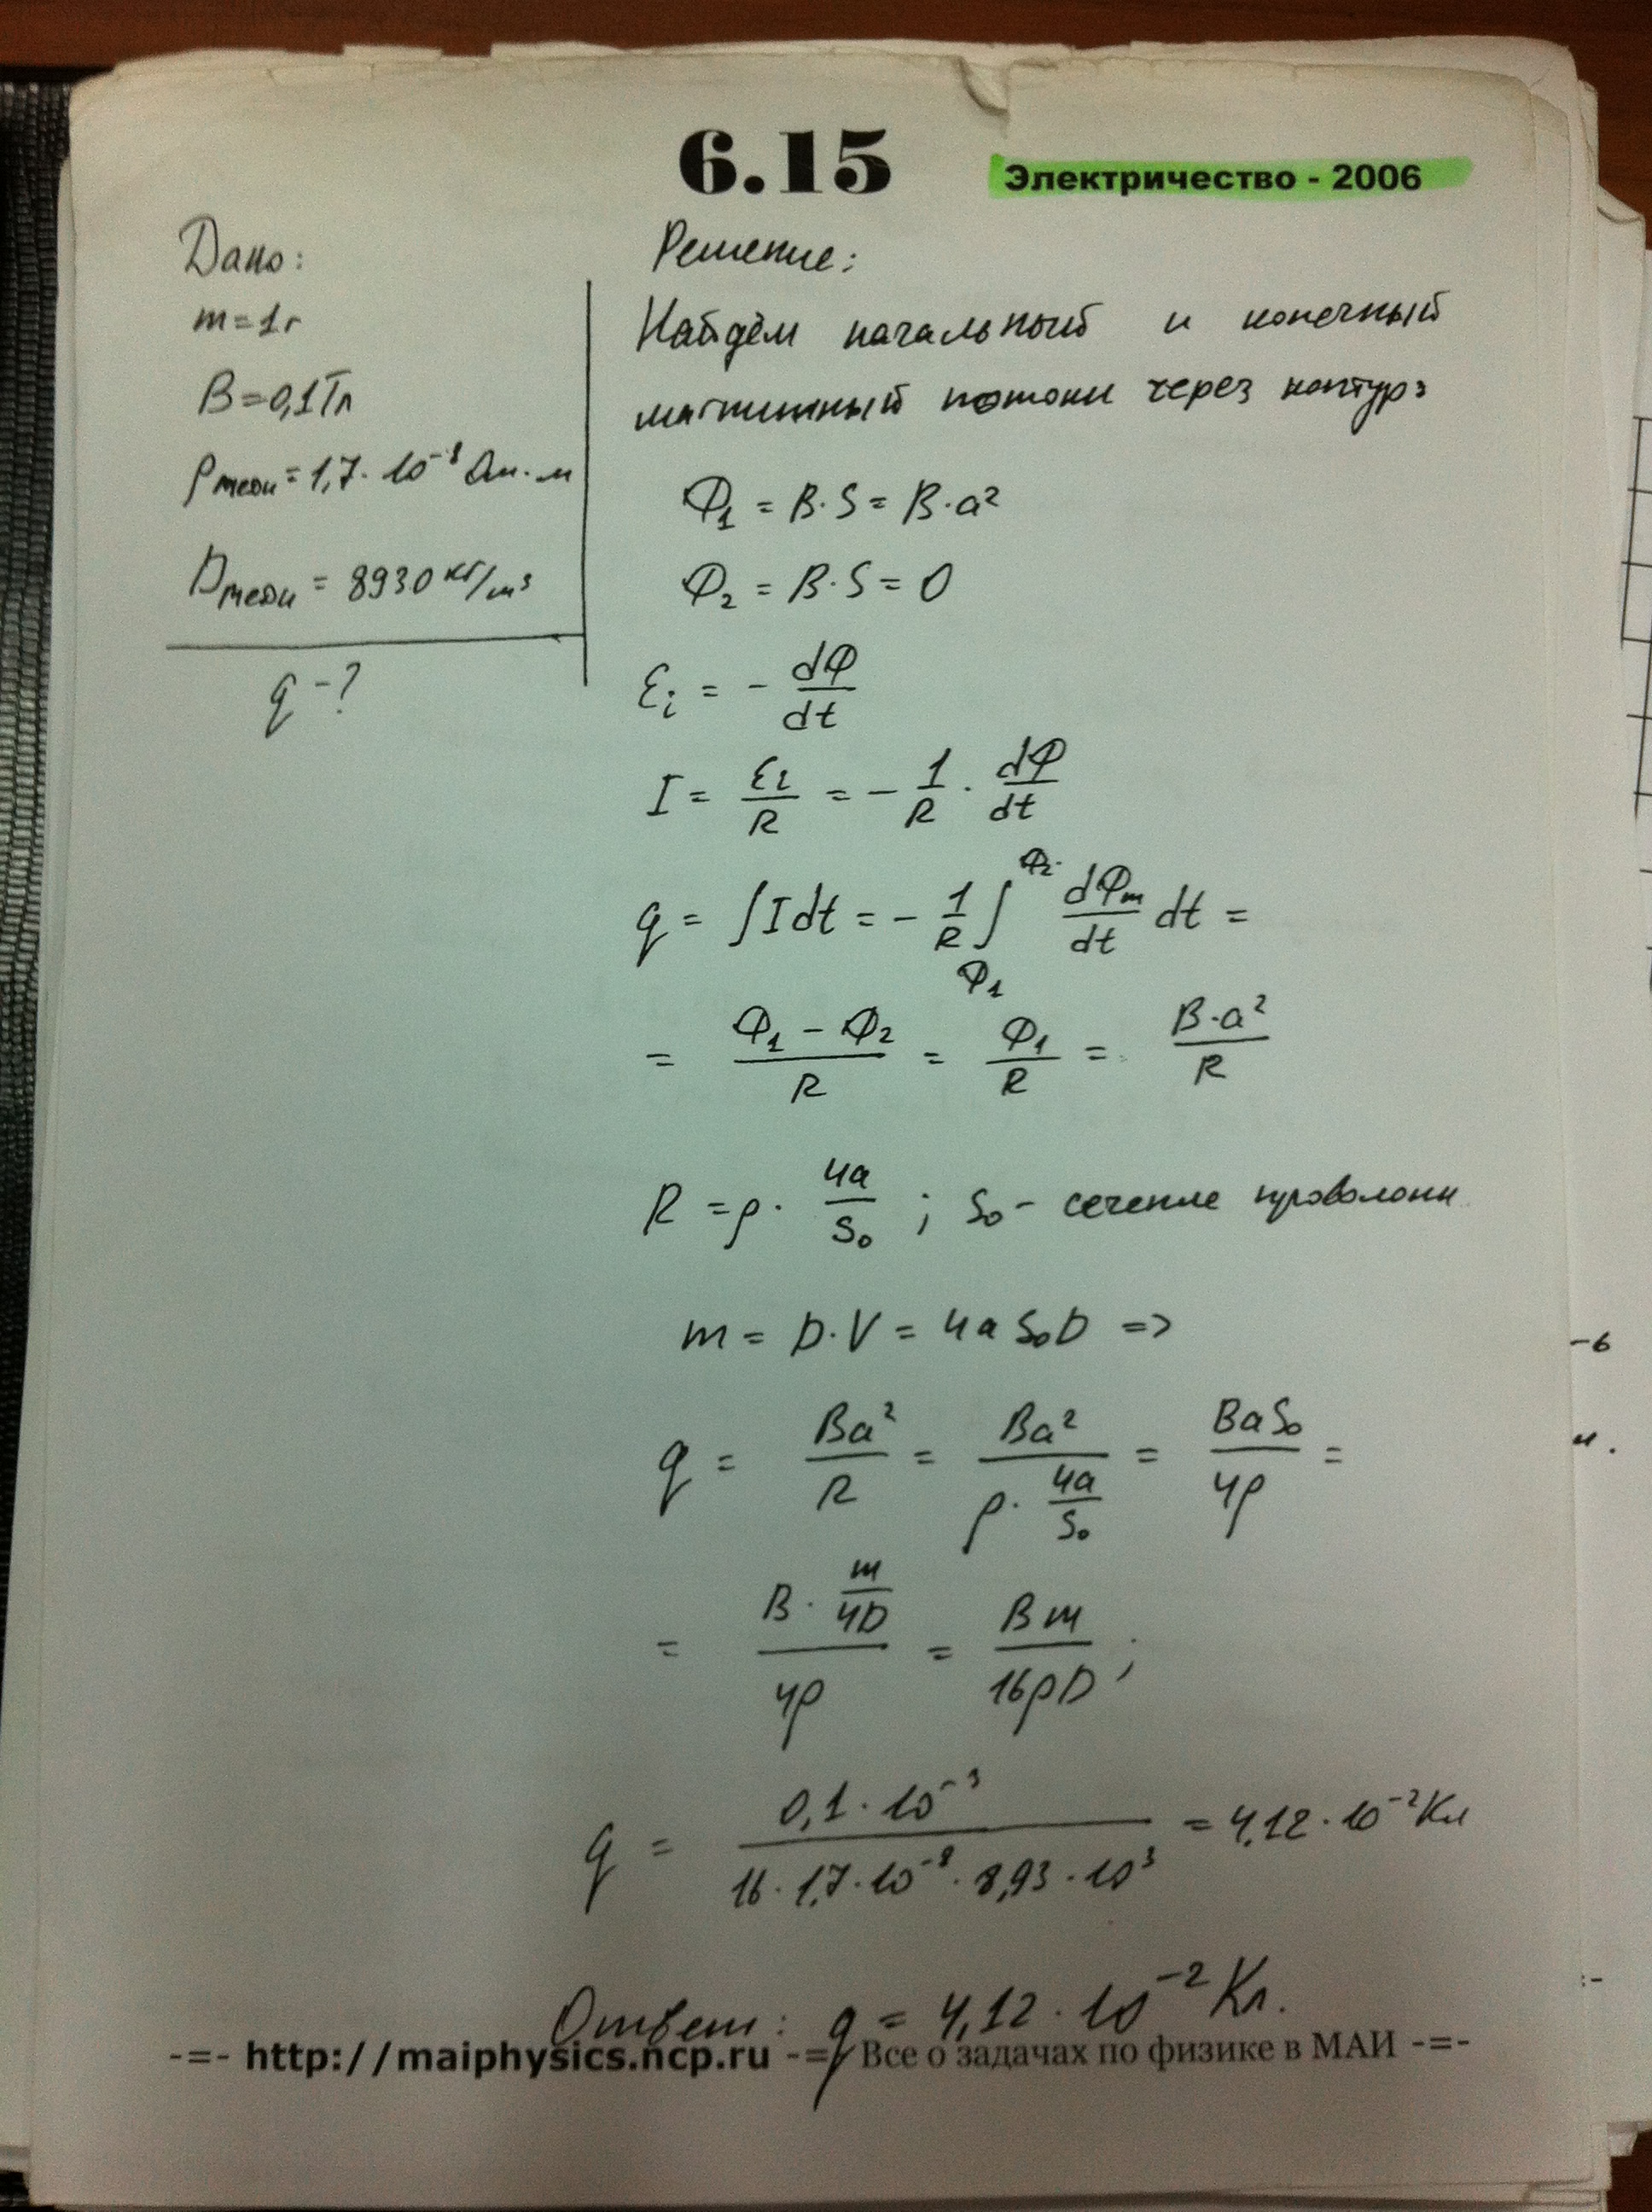 6.15
Электричество - 2006
Дано:
m = 1г
B = 0,1 Тл
ρмеди = 1,7 · 10⁻⁸ Ом · м
Dмеди = 8930 кг/м³
q - ?
Решение:
Найдём начальный и конечный
магнитный потоки через контур:
Φ₁ = B · S = B · a²
Φ₂ = B · S = 0
εᵢ = - dΦ/dt
I = εᵢ/R = - 1/R · dΦ/dt
q = ∫ I dt = - 1/R ∫_Φ₁^Φ₂ dΦm/dt dt =
= (Φ₁ - Φ₂)/R = Φ₁/R = B · a²/R
R = ρ · 4a/S₀ ; S₀ - сечение проволоки
m = D · V = 4a S₀ D =>
q = Ba²/R = Ba²/(ρ · 4a/S₀) = BaS₀/4ρ =
= (B · m/4D)/4ρ = Bm/16ρD ;
q = 0,1 · 10⁻³/(16 · 1,7 · 10⁻⁸ · 8,93 · 10³) = 4,12 · 10⁻² Кл
Ответ: q = 4,12 · 10⁻² Кл.
-=- http://maiphysics.ncp.ru -=- Все о задачах по физике в МАИ -=-
-6